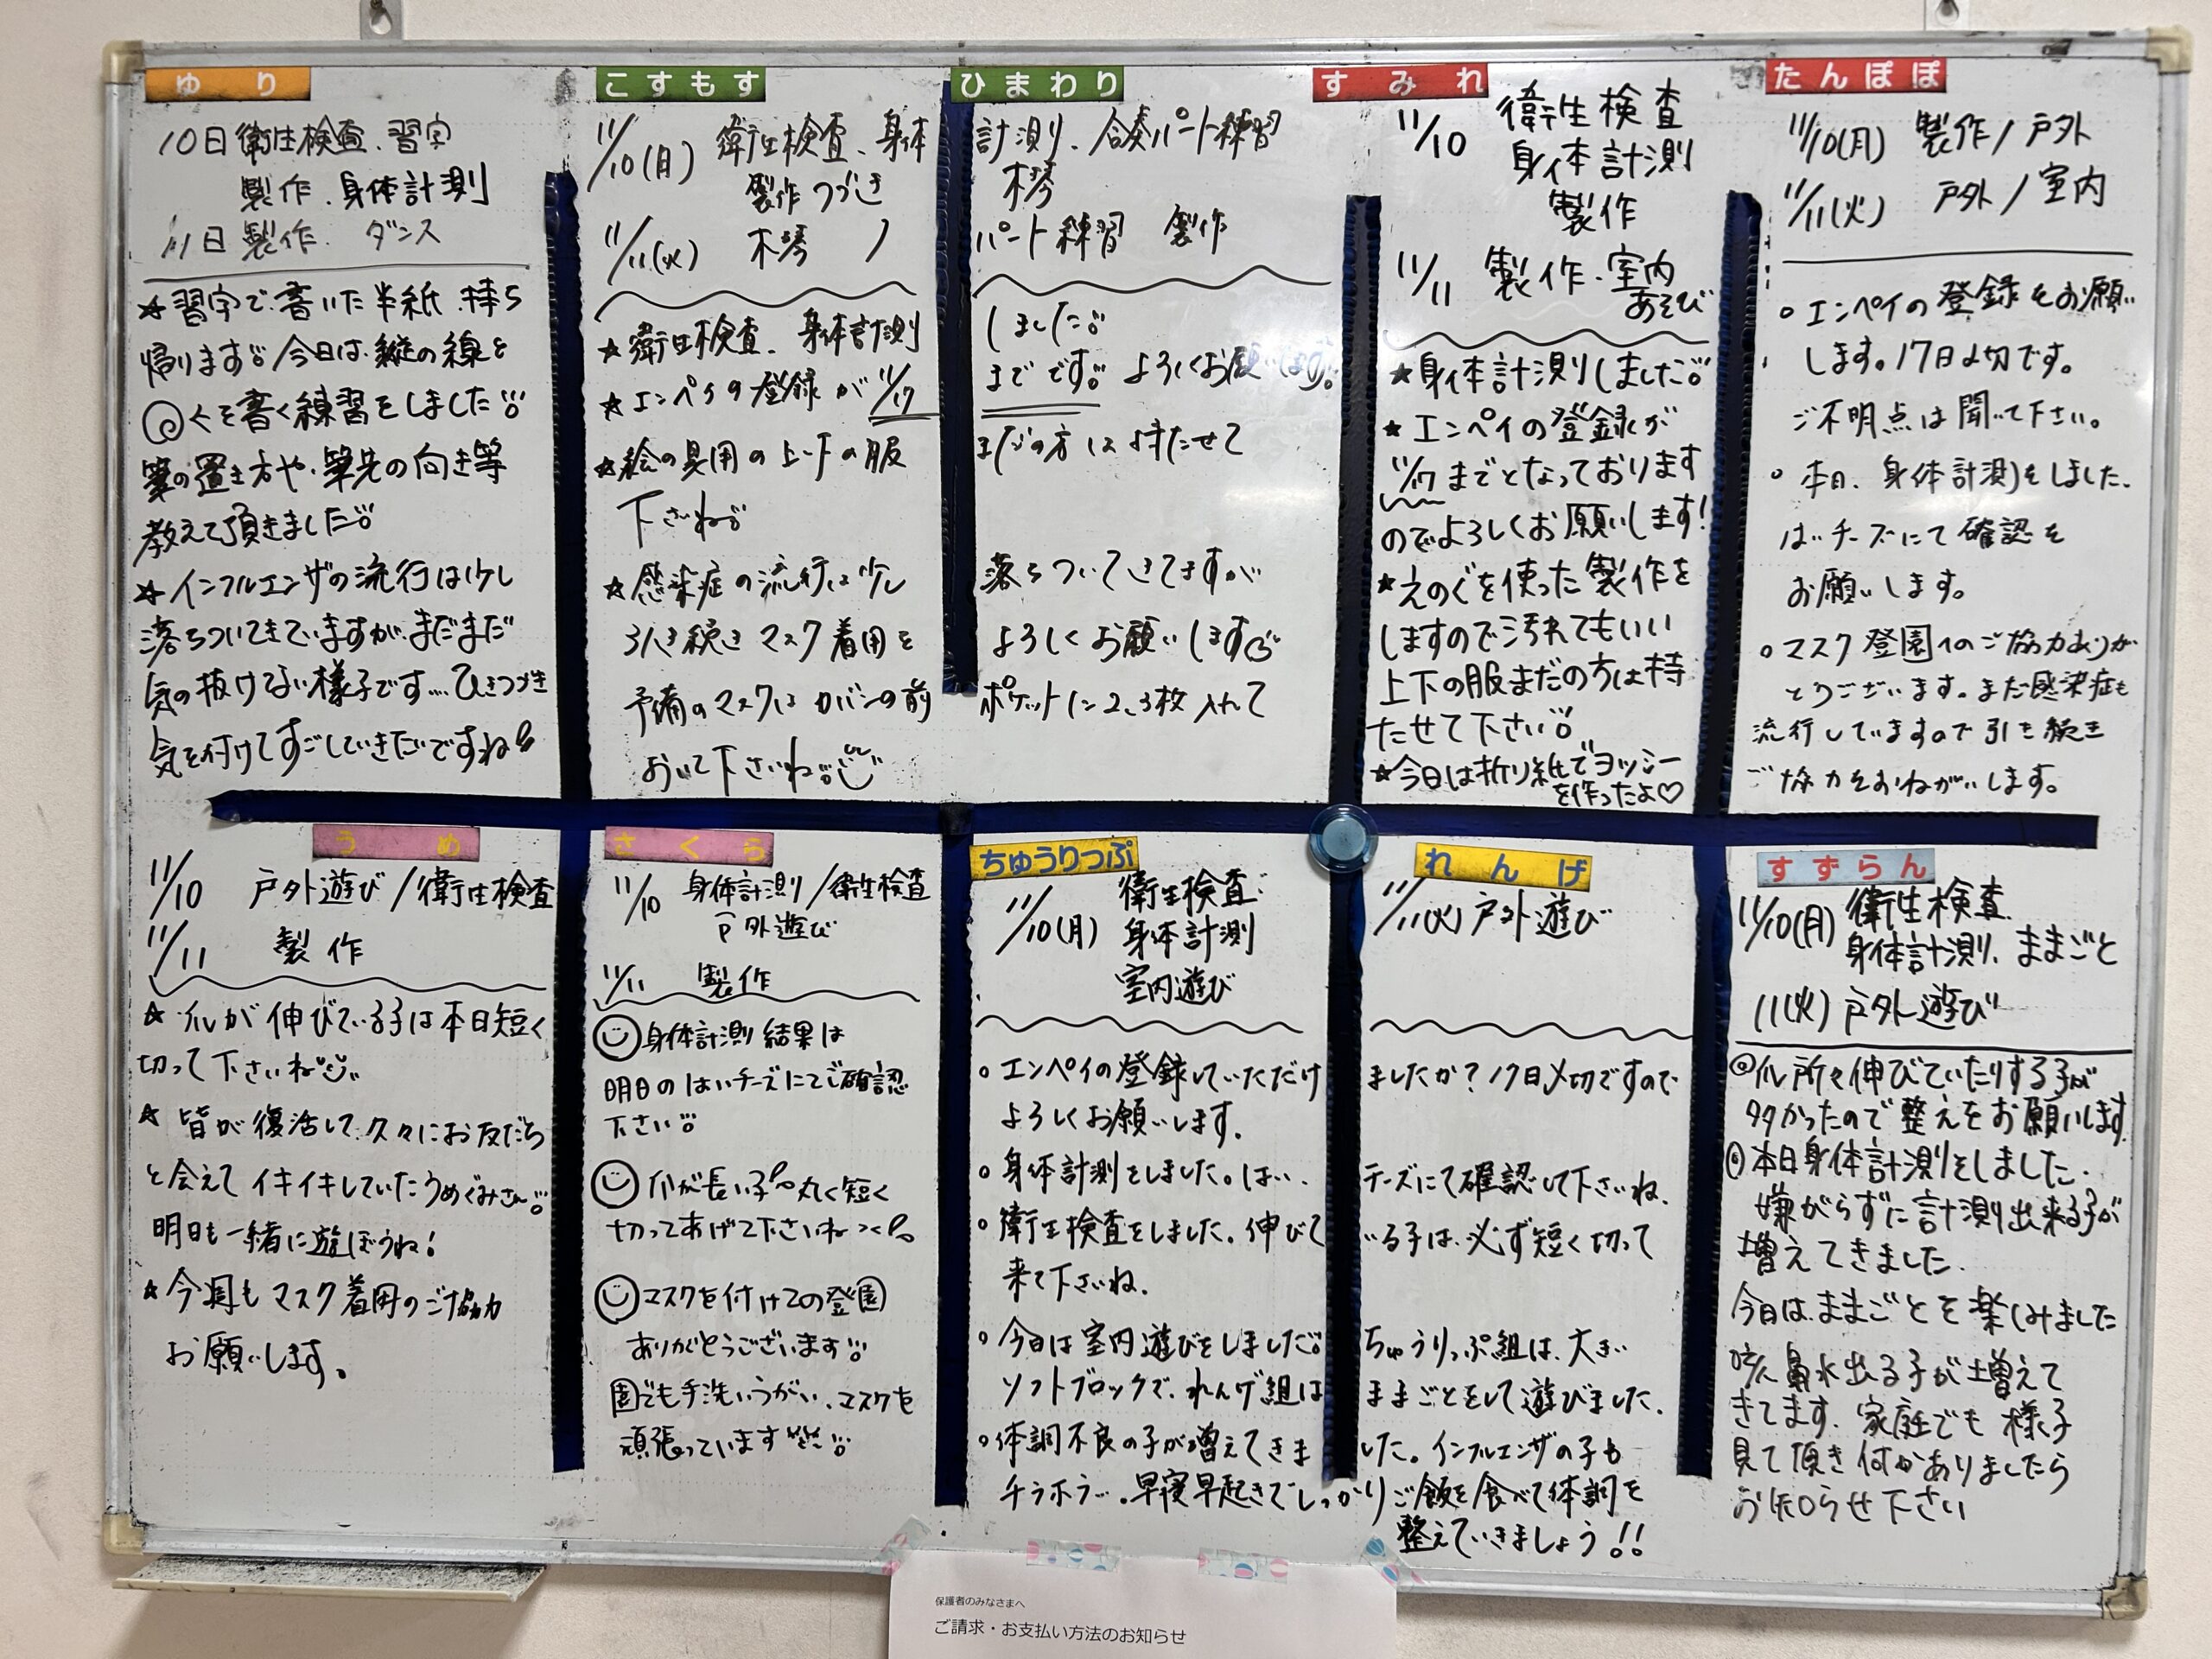 ゆり
10日 衛生検査、習字
製作、身体計測
11日 製作、ダンス
★習字で書いた半紙、持ち
帰ります。今日は、縦の線と
くを書く練習をしました
筆の置き方や、筆先の向き等
教えて頂きました
★インフルエンザの流行は少し
落ちついてきていますが、まだまだ
気の抜けない様子です…。ひきつづき
気を付けてすごしていきたいですね
こすもす ひまわり
11/10(月) 衛生検査、身体計測、合奏パート練習
製作つづき 木琴
11/11(火) 木琴パート練習 製作
★衛生検査、身体計測しました
★エンペイの登録が11/17までです。よろしくお願いします。
★絵の具用の上・下の服まだの方は持たせて
下さいね
★感染症の流行は少し落ちついてきてますが
引き続きマスク着用をよろしくお願いします
予備のマスクはカバンの前ポケットに2、3枚入れて
おいて下さいね
すみれ
11/10 衛生検査
身体計測
製作
11/11 製作・室内
あそび
★身体計測しました
★エンペイの登録が
11/17までとなっております
のでよろしくお願いします!
★えのぐを使った製作を
しますので汚れてもいい
上下の服まだの方は持
たせて下さい
★今日は折り紙でヨッシー
を作ったよ♡
たんぽぽ
11/10(月) 製作/戸外
11/11(火) 戸外/室内
○エンペイの登録をお願い
します。17日〆切です。
ご不明点は聞いて下さい。
○本日、身体計測をしました。
はいチーズにて確認を
お願いします。
○マスク登園へのご協力ありが
とうございます。まだ感染症も
流行していますので引き続き
ご協力をおねがいします。
うめ
11/10 戸外遊び/衛生検査
11/11 製作
★爪が伸びている子は本日短く
切って下さいね
★皆が復活して久々にお友だち
と会えてイキイキしていたうめぐみさん
明日も一緒に遊ぼうね!
★今週もマスク着用のご協力
お願いします。
さくら
11/10 身体計測/衛生検査
戸外遊び
11/11 製作
身体計測結果は
明日のはいチーズにてご確認
下さい
爪が長い子 丸く短く
切ってあげて下さいね
マスクを付けての登園
ありがとうございます
園でも手洗いうがい、マスクを
頑張っています
ちゅうりっぷ れんげ
11/10(月) 衛生検査 11/11(火) 戸外遊び
身体計測
室内遊び
○エンペイの登録していただけましたか?17日〆切ですので
よろしくお願いします。
○身体計測をしました。はい、チーズにて確認して下さいね。
○衛生検査をしました。伸びている子は、必ず短く切って
来て下さいね。
○今日は室内遊びをしました ちゅうりっぷ組は、大きい
ソフトブロックで、れんげ組はままごとをして遊びました。
○体調不良の子が増えてきました。インフルエンザの子も
チラホラ…。早寝早起きでしっかりご飯を食べて体調を
整えていきましょう!!
すずらん
11/10(月) 衛生検査
身体計測、ままごと
11(火) 戸外遊び
◎爪所々伸びていたりする子が
多かったので整えをお願いします
◎本日身体計測をしました。
嫌がらずに計測出来る子が
増えてきました。
今日はままごとを楽しみました
咳、鼻水出る子が増えて
きてます。家庭でも様子
見て頂き何かありましたら
お知らせ下さい
保護者のみなさまへ
ご請求・お支払い方法のお知らせ